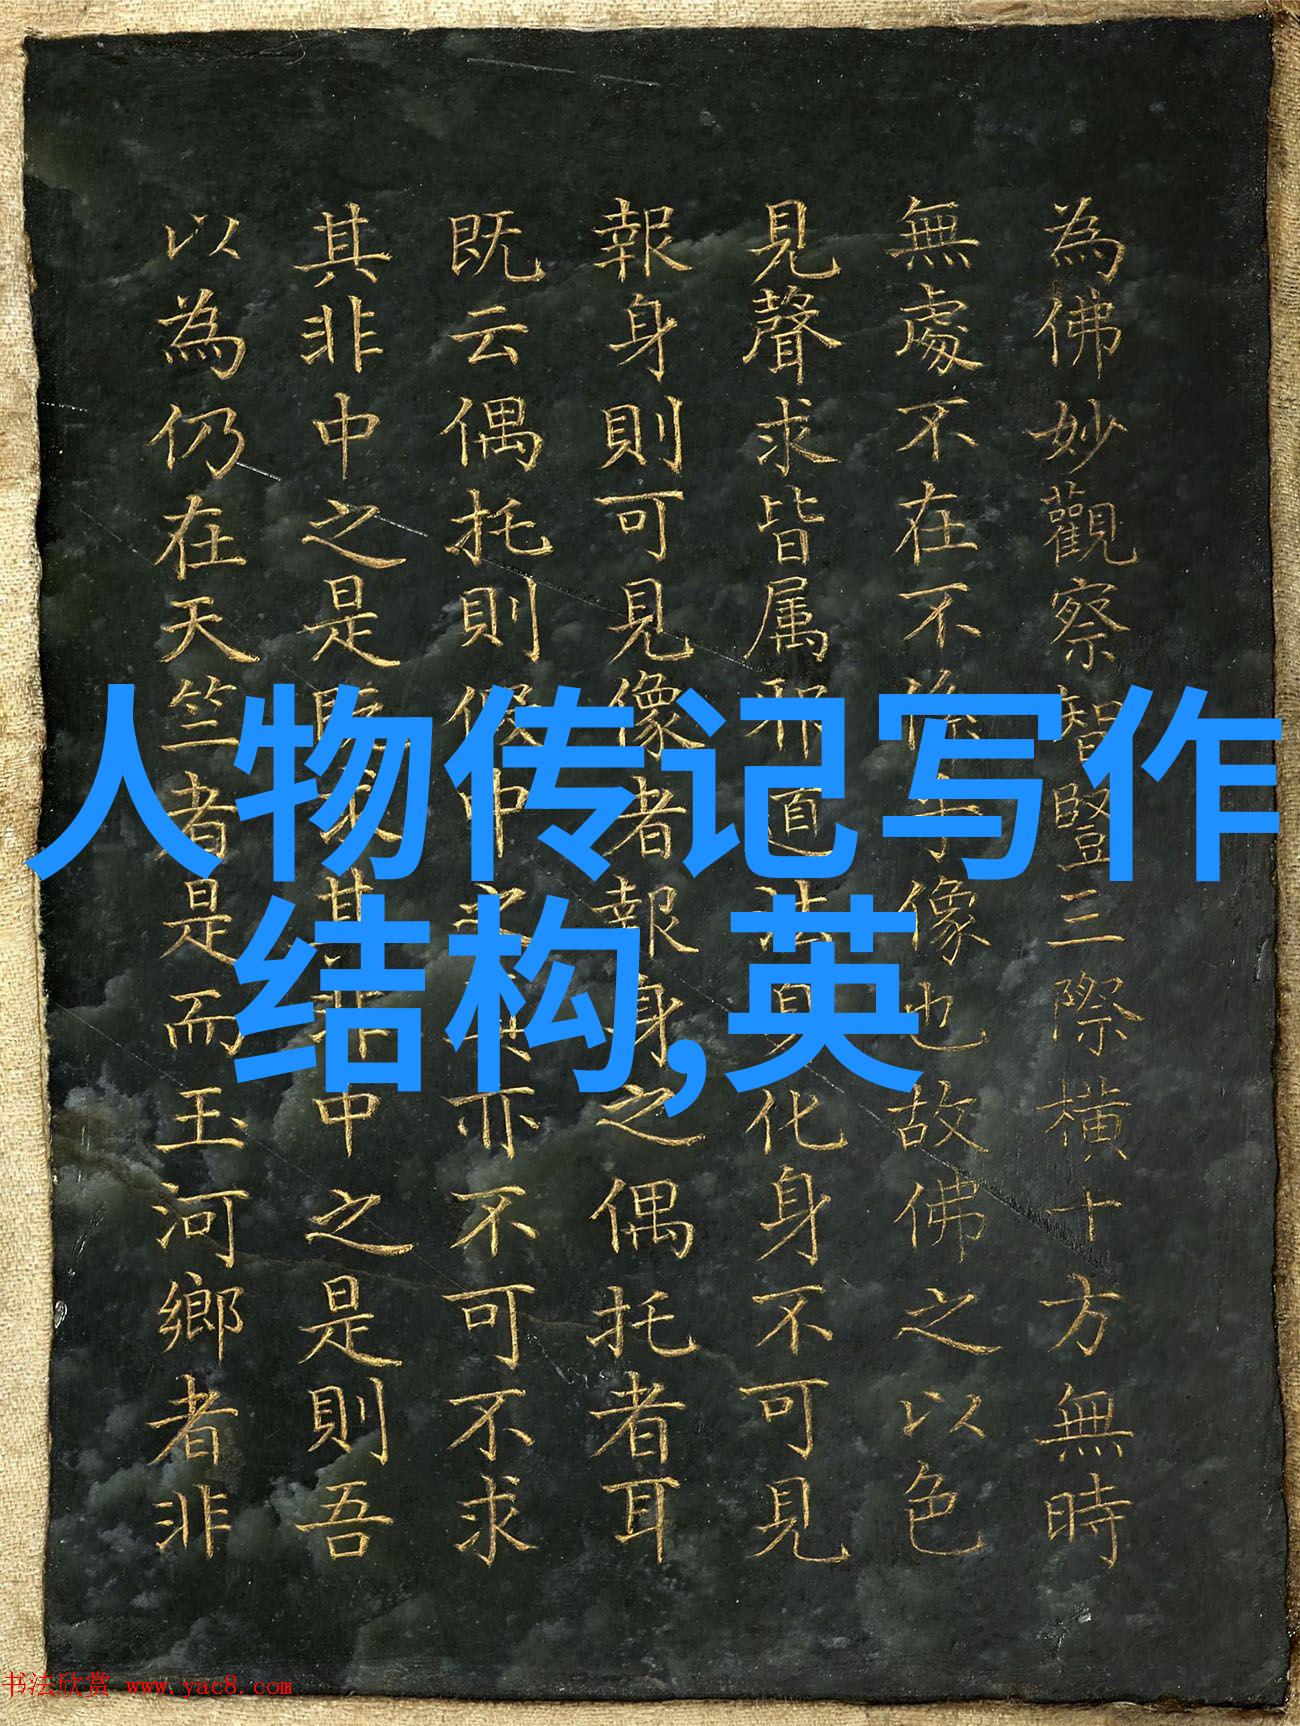 為佛妙觀察智豎三際橫十方無時
無處不在不乎像也故佛之以色
見聲求皆属邪道法化身不可見
報身則可見像者報身之偶托者耳
既云偶托則假中之亦不可不求
其非中之是既求其非中之是則吾
以為仍在天竺者是而玉河鄉者非
人物传记写作
结构,英
书法欣赏 www.yac8.com